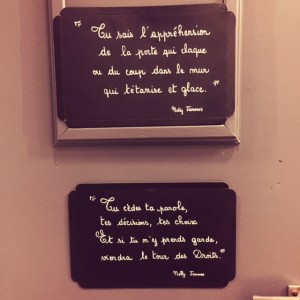 "Tu sais l'appréhension
de la porte qui claque
ou du coup dans le mur
qui tétanise et glace."
Nelly
"Tu cèdes ta parole,
tes décisions, tes choix
Et si tu n'y prends garde,
viendra le tour des Droits."
Nelly